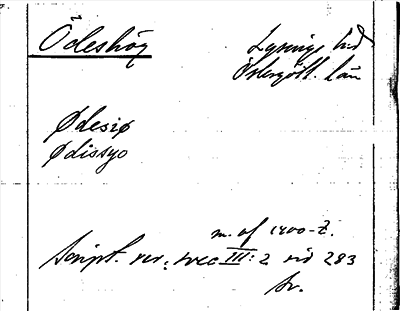 Ödeshög
Lysings hd
Östergötl. län
Ødesiø
Ødissyo
m. af 1200-t.
Script. rer. svec III: 2 sid 283
Av.